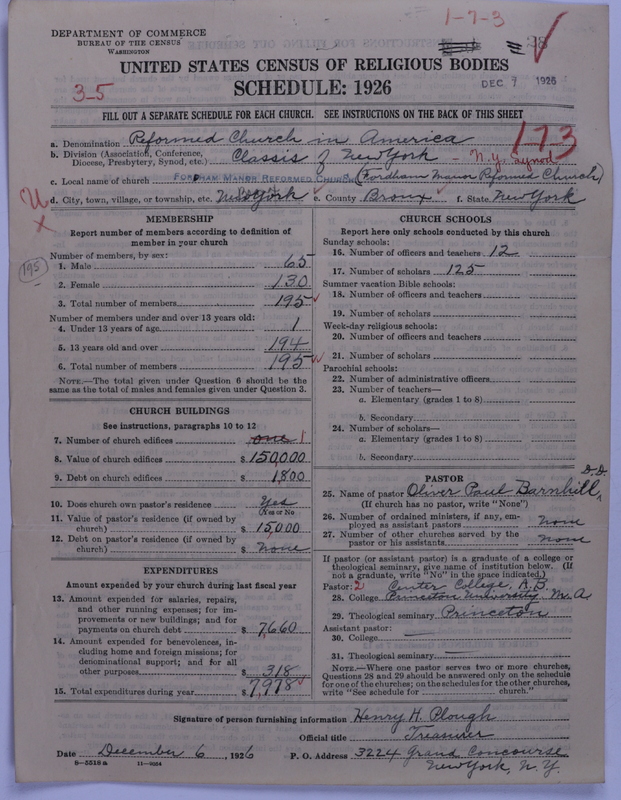 1-7-3
DEPARTMENT OF COMMERCE
BUREAU OF THE CENSUS
WASHINGTON
28
UNITED STATES CENSUS OF RELIGIOUS BODIES
3-5
SCHEDULE: 1926
DEC 7 1926
FILL OUT A SEPARATE SCHEDULE FOR EACH CHURCH. SEE INSTRUCTIONS ON THE BACK OF THIS SHEET
173
a. Denomination Reformed Church in America
b. Division (Association, Conference, Diocese, Presbytery, Synod, etc.) Classis of New York - N.Y. Synod
c. Local name of church FORDHAM MANOR REFORMED CHURCH (Fordham Manor Reformed Church)
d. City, town, village, or township, etc. New York e. County Bronx f. State New York
MEMBERSHIP
Report number of members according to definition of member in your church
Number of members, by sex:
1. Male 65
195
2. Female 130
3. Total number of members 195
Number of members under and over 13 years old:
4. Under 13 years of age 1
5. 13 years old and over 194
6. Total number of members 195
NOTE.—The total given under Question 6 should be the same as the total of males and females given under Question 3.
CHURCH BUILDINGS
See instructions, paragraphs 10 to 12
7. Number of church edifices one 1
8. Value of church edifices $ 150,000
9. Debt on church edifices $ 1800
10. Does church own pastor's residence Yes
(Yes or No)
11. Value of pastor's residence (if owned by church) $ 15,000
12. Debt on pastor's residence (if owned by church) $ None
EXPENDITURES
Amount expended by your church during last fiscal year
13. Amount expended for salaries, repairs, and other running expenses; for improvements or new buildings; and for payments on church debt $ 7,660
14. Amount expended for benevolences, including home and foreign missions; for denominational support; and for all other purposes $ 318
15. Total expenditures during year $ 7,978
CHURCH SCHOOLS
Report here only schools conducted by this church
Sunday schools:
16. Number of officers and teachers 12
17. Number of scholars 125
Summer vacation Bible schools:
18. Number of officers and teachers
19. Number of scholars
Week-day religious schools:
20. Number of officers and teachers
21. Number of scholars
Parochial schools:
22. Number of administrative officers
23. Number of teachers—
a. Elementary (grades 1 to 8)
b. Secondary
24. Number of scholars—
a. Elementary (grades 1 to 8)
b. Secondary
PASTOR
25. Name of pastor Oliver Paul Barnhill, D.D.
(If church has no pastor, write "None")
26. Number of ordained ministers, if any, employed as assistant pastors none
27. Number of other churches served by the pastor or his assistants none
If pastor (or assistant pastor) is a graduate of a college or theological seminary, give name of institution below. (If not a graduate, write "No" in the space indicated.)
Pastor: 2 Center College, A.B.
28. College Princeton University M.A
29. Theological seminary Princeton
Assistant pastor:
30. College
31. Theological seminary
NOTE.—Where one pastor serves two or more churches, Questions 28 and 29 should be answered only on the schedule for one of the churches; on the schedules for the other churches, write "See schedule for church."
Signature of person furnishing information Henry H. Plough
Official title Treasurer
Date December 6, 1926 P. O. Address 3224 Grand Concourse
8-5518a 11-9034 New York, N.Y.